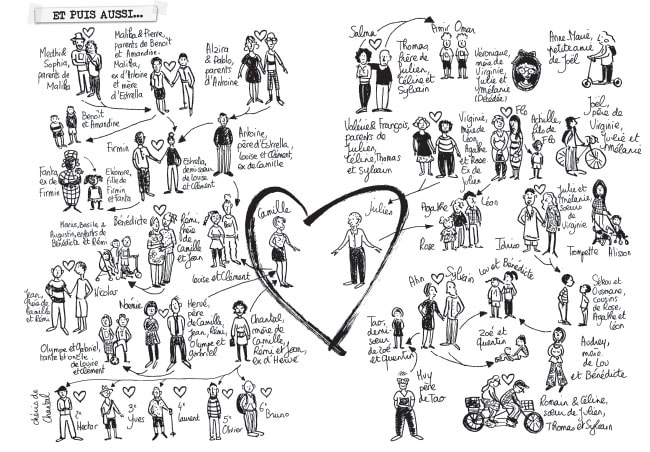 ET PUIS AUSSI...
Medhi &
Sophia,
parents de
Malika
Malika & Pierre,
parents de Benoît
et Amandine.
Malika,
ex d'Antoine
et mère
d'Estrella
Alzira
& Pablo,
parents
d'Antoine
Benoît
et Amandine
Firmin
Estrella,
demi-sœur
de Louise
et Clément
Antoine,
père d'Estrella,
Louise et Clément,
ex de Camille
Fanta,
ex de
Firmin
Eléonore,
fille de
Firmin
et Fanta
Basile &
Augustin, enfants de
Bénédicte et Rémi
Bénédicte
Rémi,
frère de
Camille
et Jean
Louise et Clément
Camille
Julien
Jean,
frère de
Camille
et Rémi
Nicolas
Noémie
Hervé,
père
de Camille,
Jean, Rémi,
Olympe et
Gabriel
Chantal,
mère de
Camille,
Rémi et Jean,
ex d'Hervé
Olympe et Gabriel,
tante et oncle
de Louise
et Clément
chéris de
Chantal
2e
Hector
3e
Yves
4e
Laurent
5e
Olivier
6e
Bruno
Salma
Thomas,
frère de
Julien,
Céline et
Sylvain
Amir Omar
Véronique,
mère de
Virginie,
Julie et
Mélanie
(Décédée)
Anne-Marie,
petite amie
de Joël
Valérie & François,
parents de
Julien,
Céline, Thomas
et Sylvain
Virginie,
mère de
Léon,
Agathe
et Rose.
Ex de
Julien
Flo
Achille,
fils de
Flo
Joël,
père de
Virginie,
Julie et
Mélanie
Agathe
Léon
Rose
Julie et
Mélanie,
sœurs de
Virginie
Trompette
Alisson
Anh
Sylvain
Lou et Bénédicte
Sékou et
Ousmane,
cousins
de Rose,
Agathe et
Léon
Tao,
demi-
sœur
de Zoé
et Quentin
Zoé et
Quentin
Audrey,
mère
de Lou
et Bénédicte
Huy
père
de Tao
Romain & Céline,
sœur de Julien,
Thomas et Sylvain